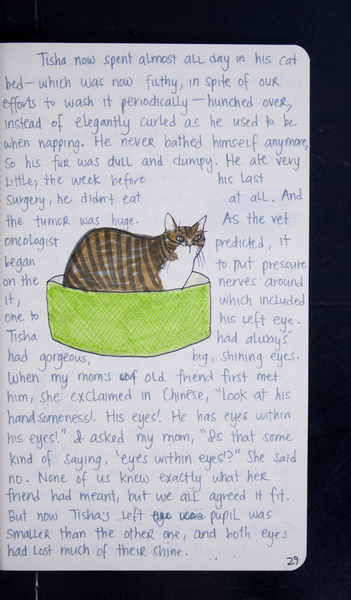 Tisha now spent almost all day in his cat
bed—which was now filthy, in spite of our
efforts to wash it periodically—hunched over,
instead of elegantly curled as he used to be
when napping. He never bathed himself anymore,
so his fur was dull and clumpy. He ate very
little; the week before his last
surgery, he didn't eat at all. And
the tumor was huge. As the vet
oncologist predicted, it
began to put pressure
on the nerves around
it, which included
one to his left eye.
Tisha had always
had gorgeous, big, shining eyes.
When my mom's old friend first met
him, she exclaimed in Chinese, "Look at his
handsomeness! His eyes! He has eyes within
his eyes!" I asked my mom, "Is that some
kind of saying, 'eyes within eyes'?" She said
no. None of us knew exactly what her
friend had meant, but we all agreed it fit.
But now Tisha's left pupil was
smaller than the other one, and both eyes
had lost much of their shine.
29